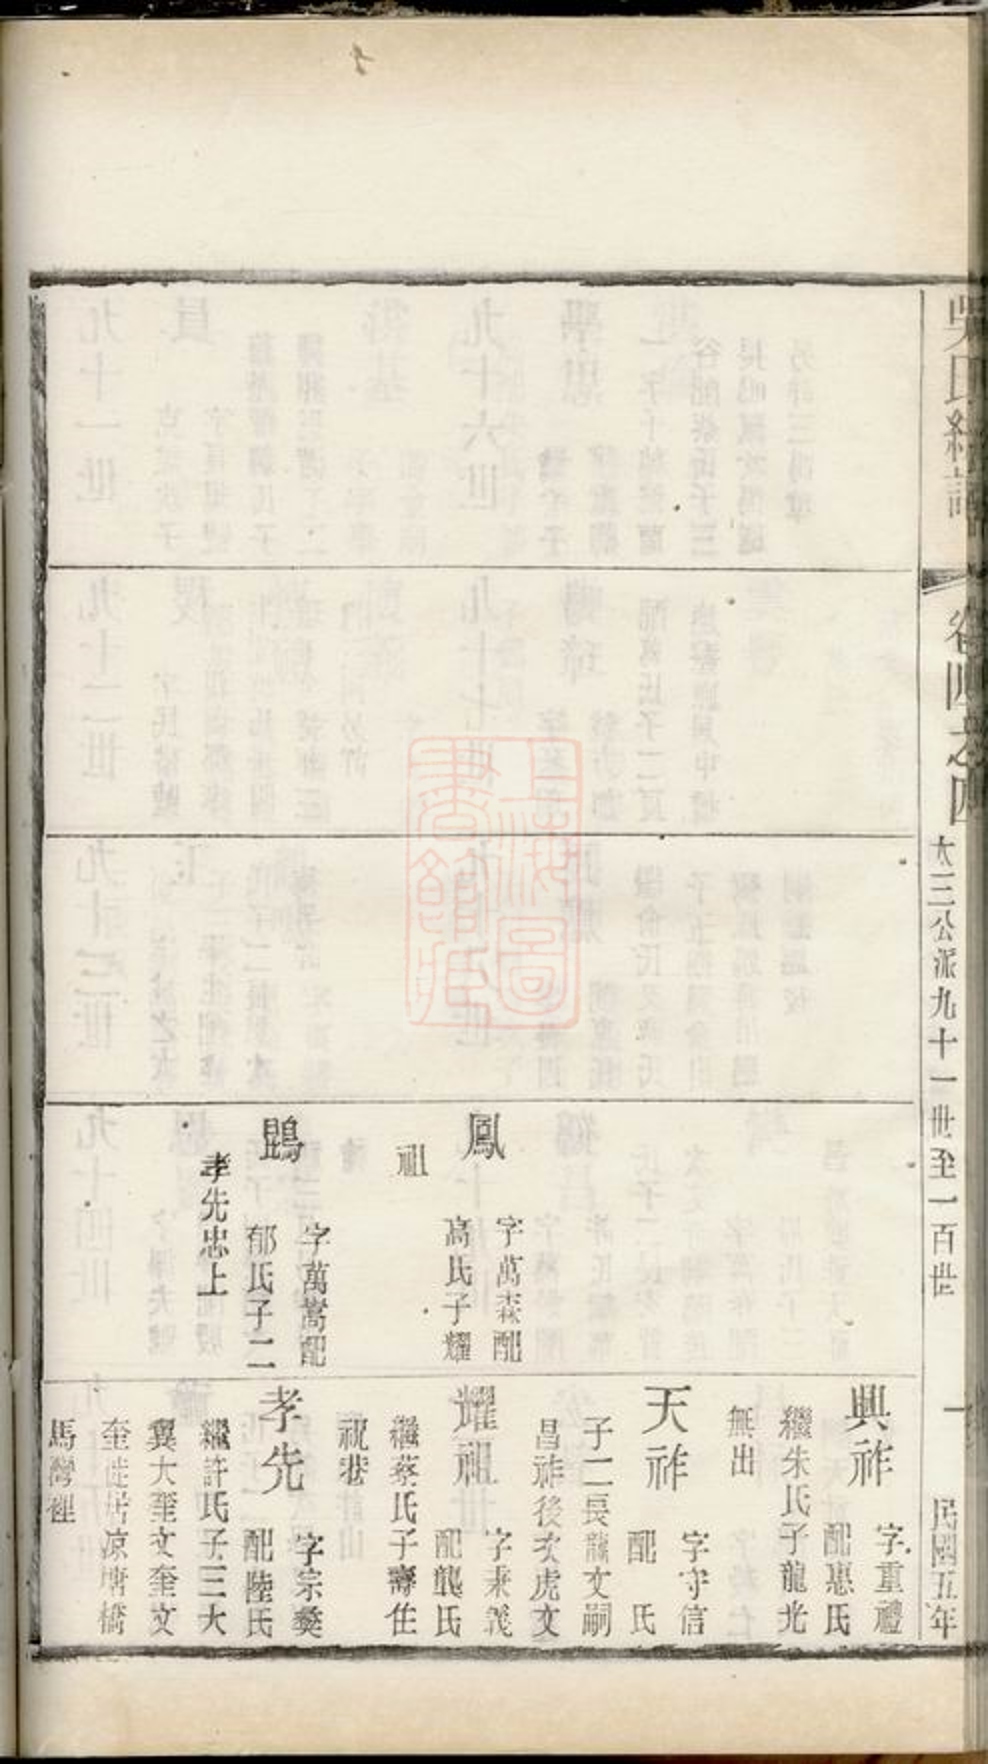 吳氏統譜
卷四之四
太三公派九十一世至一百世
一
民國五年
鳳
字萬森配
高氏子耀
祖
鵾
字萬嵩配
郁氏子二
孝先忠上
興祚
字重禮
配惠氏
繼朱氏子龍光
無出
天祚
字守信
配 氏
子二長龍文嗣
昌祚後次虎文
耀祖
字秉義
配龔氏
繼蔡氏子壽住
祝巷
孝先
字宗獎
配陸氏
繼許氏子三大
翼大奎文奎文
奎徙居凉塘橋
馬灣裡
上海圖書館藏